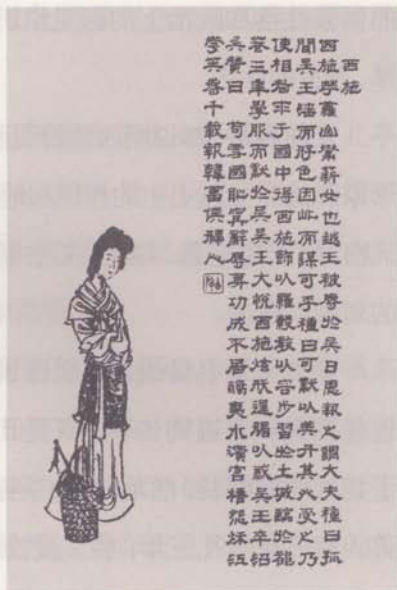 西施
西施學蘿山鬻薪女也越王被辱於吳日思報之謂大夫種曰孤
聞吳王婬而好色因此而謀可乎種曰可獻以美其必受之乃
使相者求國中得西施飾以羅縠教以容步習於土城臨於龍
三年學服而獻於吳吳王大悅西施炫服以惑吳王卒沼
吳贊曰 苟雪國恥寧辭辱身功成不居鴟夷水濱宮江
英香千載報韓畱侯